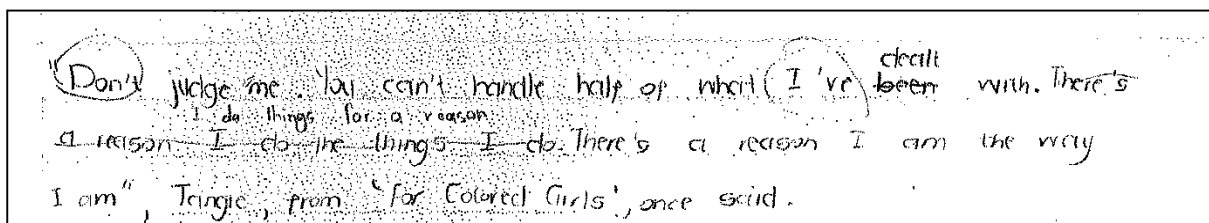 "Don't judge me. You can't handle half of what I've been dealt with. There's
I do things for a reason
a reason I do the things I do. There's a reason I am the way
I am", Tangie, from 'for Colored Girls', once said.